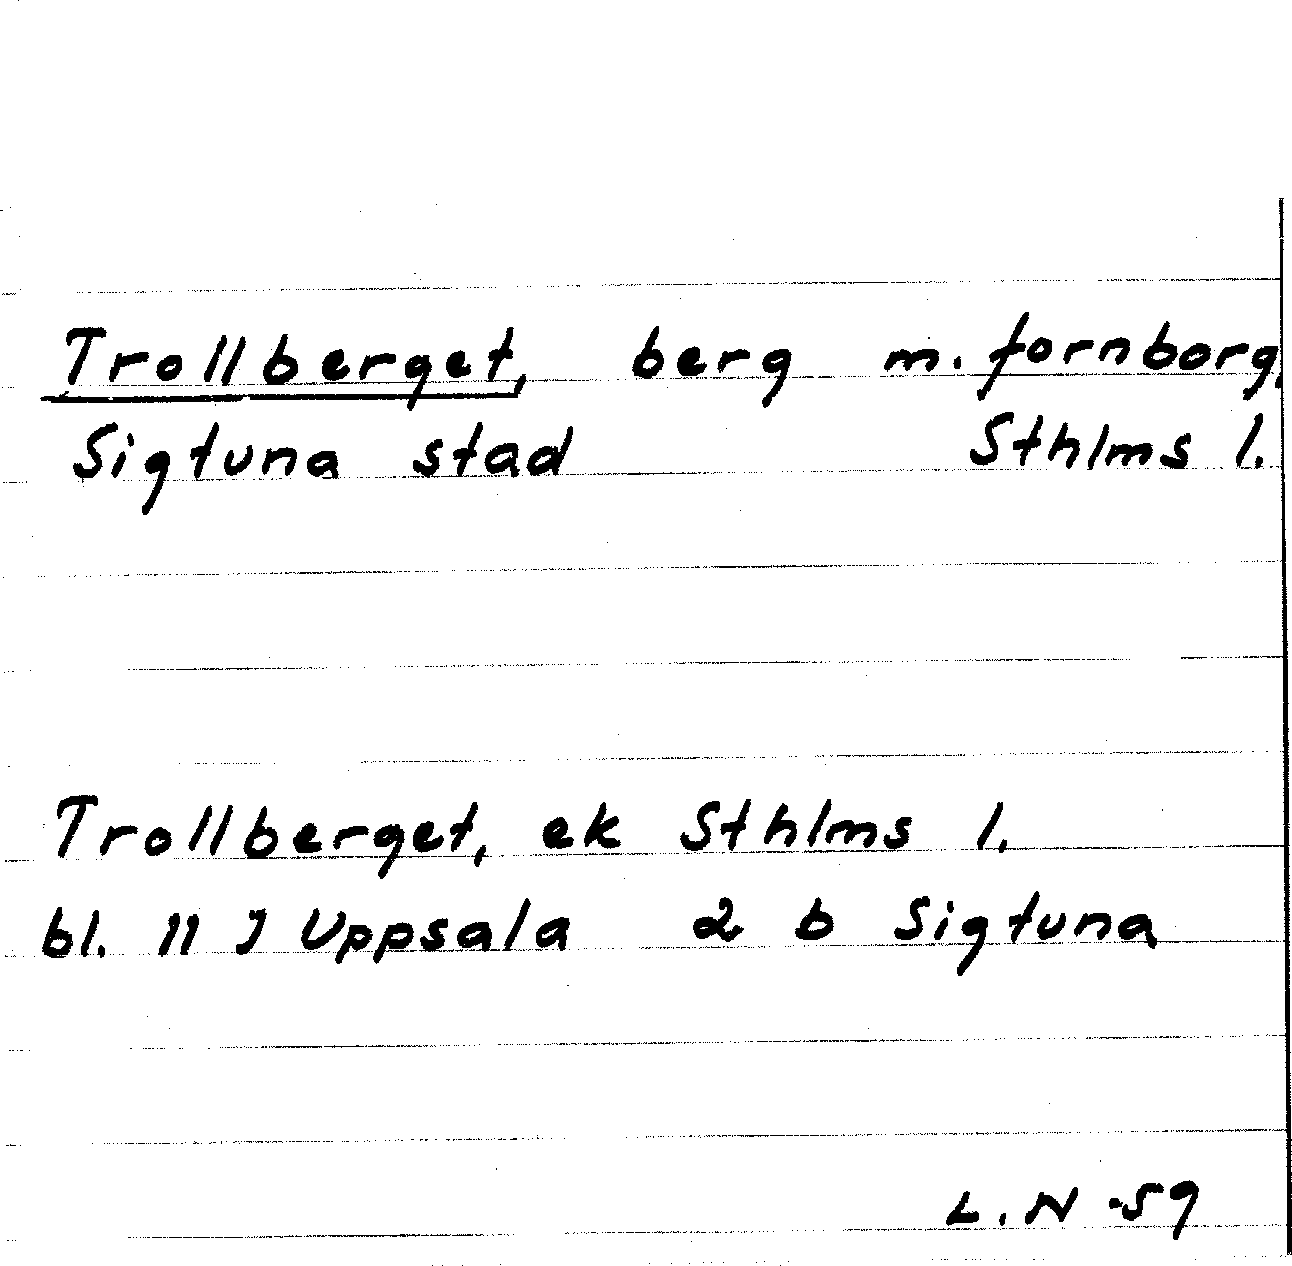 Trollberget, berg m. fornborg,
Sigtuna stad Sthlms l.
Trollberget, ek Sthlms l.
bl. 11 J Uppsala 2 b Sigtuna
L. N -59